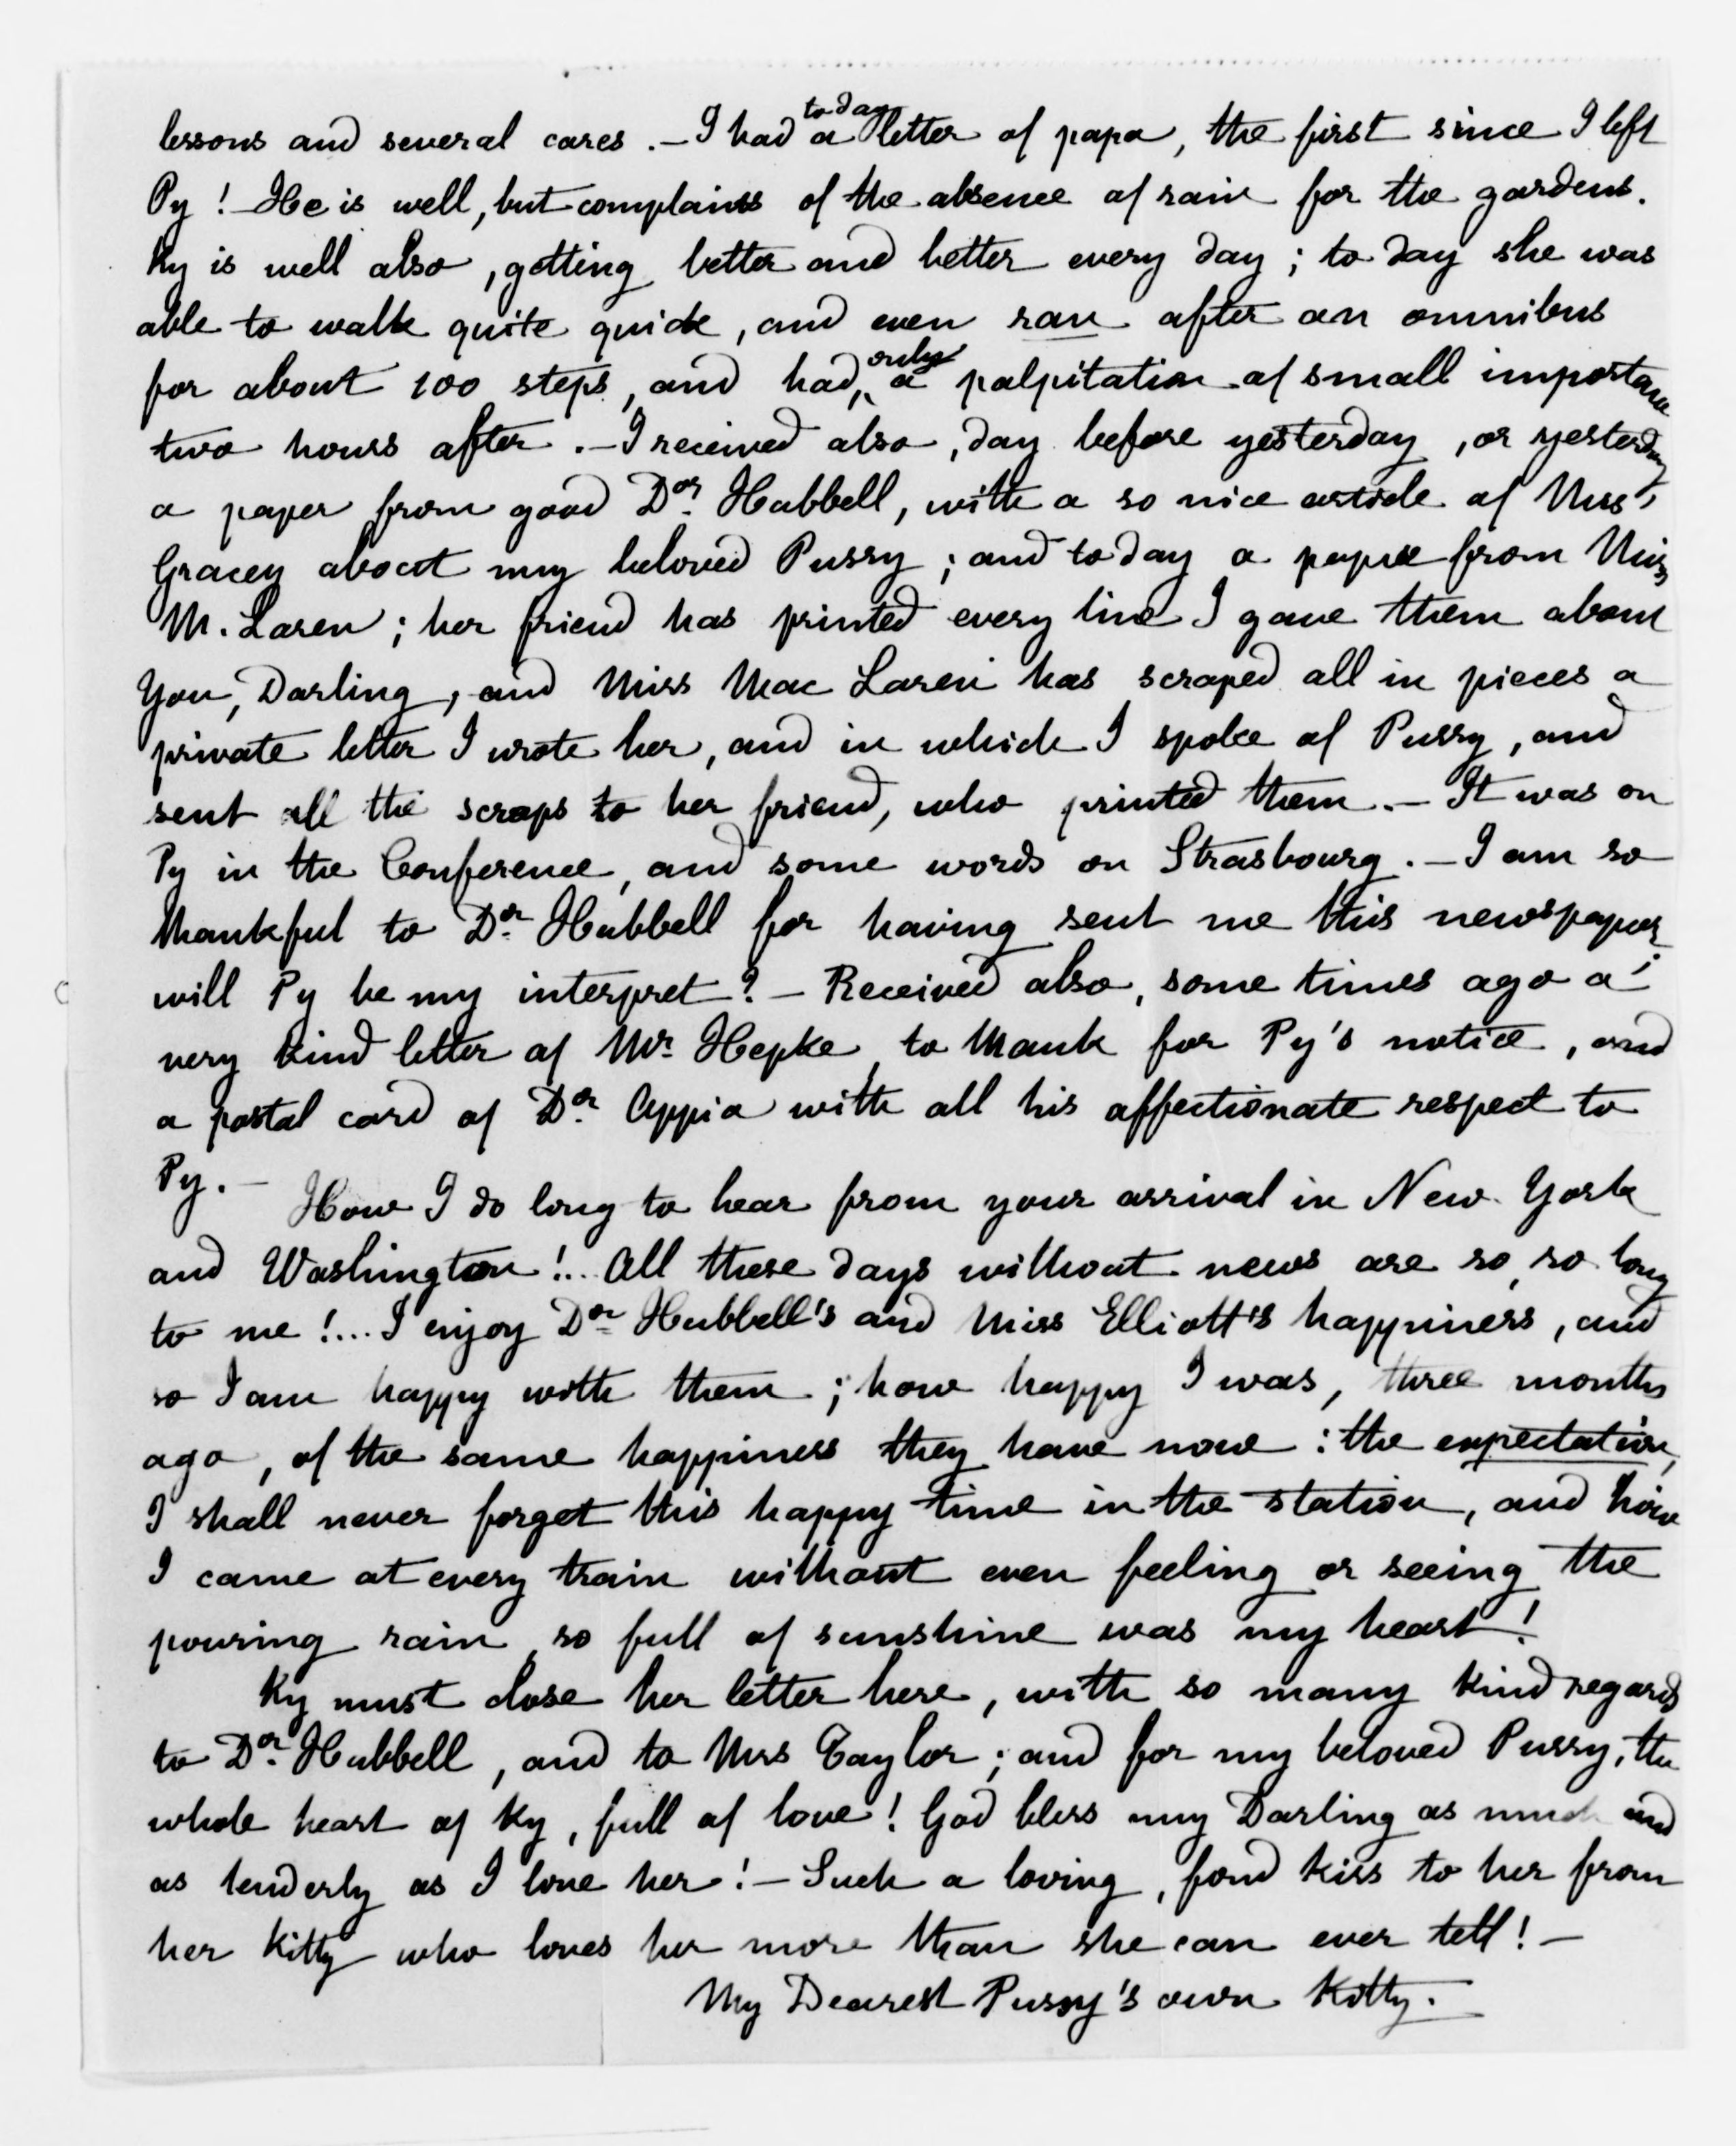 lessons and several cares. — I had today a letter of papa, the first since I left
Py! — He is well, but complains of the absence of rain for the gardens.
Ky is well also, getting better and better every day; to day she was
able to walk quite quick, and even ran after an omnibus
for about 100 steps, and had, only a palpitation of small importance
two hours after. — I received also, day before yesterday, or yesterday
a paper from good Dor. Hubbell, with a so nice article of Mrs
Gracey about my beloved Pussy; and to day a paper from Miss
M. Laren; her friend has printed every line I gave them about
You, Darling, and Miss Mac Laren has scraped all in pieces a
private letter I wrote her, and in which I spoke of Pussy, and
sent all the scraps to her friend, who printed them. — It was on
Py in the Conference, and some words on Strasbourg. — I am so
thankful to Dor. Hubbell for having sent me this newspaper;
will Py be my interpret? — Received also, some times ago a
very kind letter of Mr. Hepke, to thank for Py's notice, and
a postal card of Dor. Appia with all his affectionate respect to
Py. —
How I do long to hear from your arrival in New York
and Washington!.. All these days without news are so, so long
to me!... I enjoy Dor. Hubbell's and Miss Elliott's happiness, and
so I am happy with them; how happy I was, three months
ago, of the same happiness they have now: the expectation,
I shall never forget this happy time in the station, and how
I came at every train without even feeling or seeing the
pouring rain, so full of sunshine was my heart!
Ky must close her letter here, with so many kind regards
to Dor. Hubbell, and to Mrs Taylor; and for my beloved Pussy, the
whole heart of Ky, full of love! God bless my Darling as much and
as tenderly as I love her! — Such a loving, fond kiss to her from
her Kitty who loves her more than she can ever tell! —
My Dearest Pussy's own Kitty. —